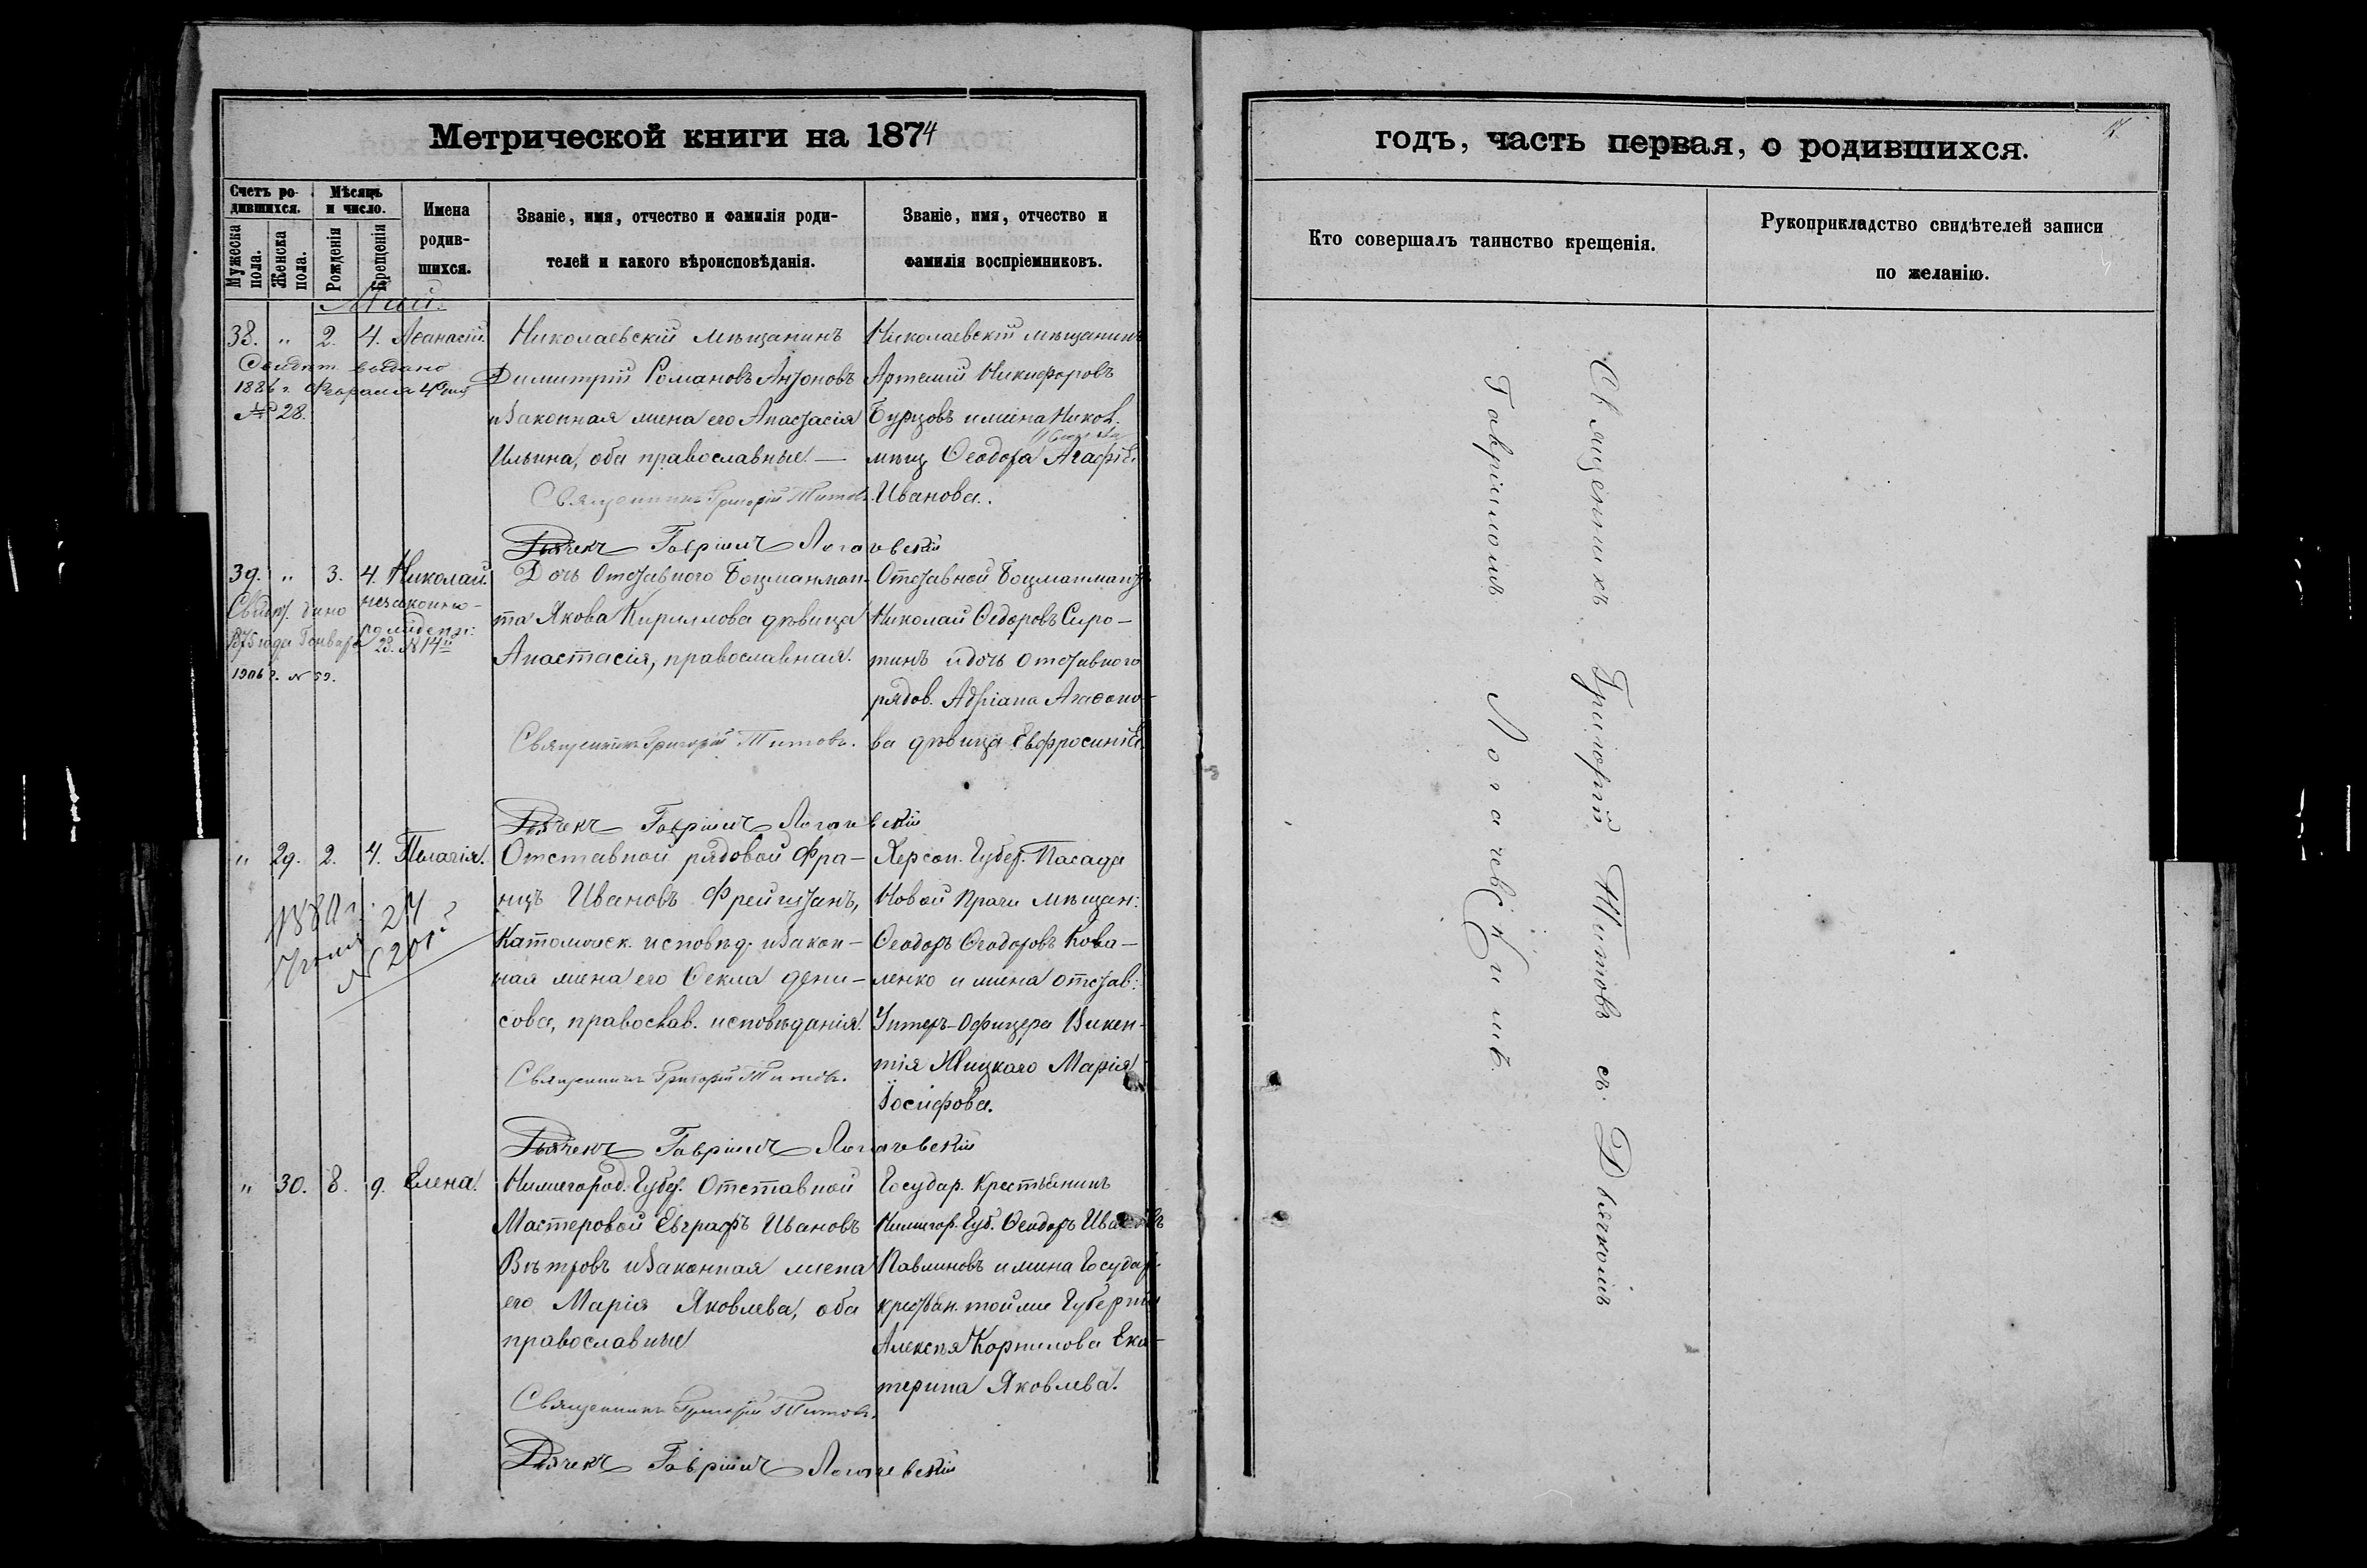 Метрической книги на 1874
Счетъ родившихся.
Мужеска пола.
Женска пола.
Мѣсяцъ и число.
Рожденія
Крещенія
Имена родившихся.
Званіе, имя, отчество и фамилія родителей и какого вѣроисповѣданія.
Званіе, имя, отчество и фамилія воспріемниковъ.
Май.
38. " 2. 4. Аѳанасій.
Свидѣт. выдано
1886 г. Февраля 4 дня
№ 28.
Николаевскій мѣщанинъ
Димитрій Романовъ Антоновъ
и законная жена его Анастасія
Ильина, оба православные. —
Священникъ Григорій Титовъ.
Дьячекъ Гавріилъ Логачевскій
Николаевскій мѣщанинъ
Артемій Никифоровъ
Бурцовъ и жена Никол.
мѣщ Ѳеодора Агафія
Иванова.
39. " 3. 4. Николай.
незаконно-
рожденн:
Свидѣт. дано
1875 года Января 23. № 14й
1906 г. № 59.
Дочь Отставного Боцманман-
та Якова Кириллова дѣвица
Анастасія, православная.
Священникъ Григорій Титовъ.
Дьячекъ Гавріилъ Логачевскій
Отставной Боцманматъ
Николай Ѳедоровъ Сиро-
тинъ и дочь отставного
рядов. Адріана Агаѳоно-
ва дѣвица Евфросинія.
" 29. 2. 4. Пелагія.
1880 г.
24
№ 201
Отставной рядовой Фра-
нцъ Ивановъ Фрейштанъ,
Католическ. исповѣд. и закон-
ная жена его Ѳекла Дени-
сова, православ. исповѣданія.
Священникъ Григорій Титовъ.
Дьячекъ Гавріилъ Логачевскій
Херсон. Губер. Посада
Новой Праги мѣщан:
Ѳеодоръ Ѳеодоровъ Кова-
ленко и жена отстав:
Унтеръ-Офицера Викен-
тія Марія
Іосифова.
" 30. 8. 9. Елена.
Нижегород. Губер. Отставной
Мастеровой Евграфъ Ивановъ
Вѣтровъ и законная жена
его Марія Яковлева, оба
православные
Священникъ Григорій Титовъ.
Дьячекъ Гавріилъ Логачевскій
Государ. Крестьянинъ
Нижегор. Губ. Ѳеодоръ Ивановъ
Павлиновъ и жена Государ.
крестьян. той же Губерніи
Алексѣя Корнилова Ека-
терина Яковлева.
годъ, часть первая, о родившихся.
17
Кто совершалъ таинство крещенія.
Рукоприкладство свидѣтелей записи по желанію.
Священникъ Григорій Титовъ съ Дьячкомъ
Гавріиломъ Логачевскимъ.